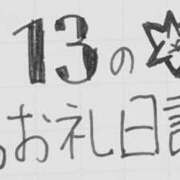 13の
お礼日